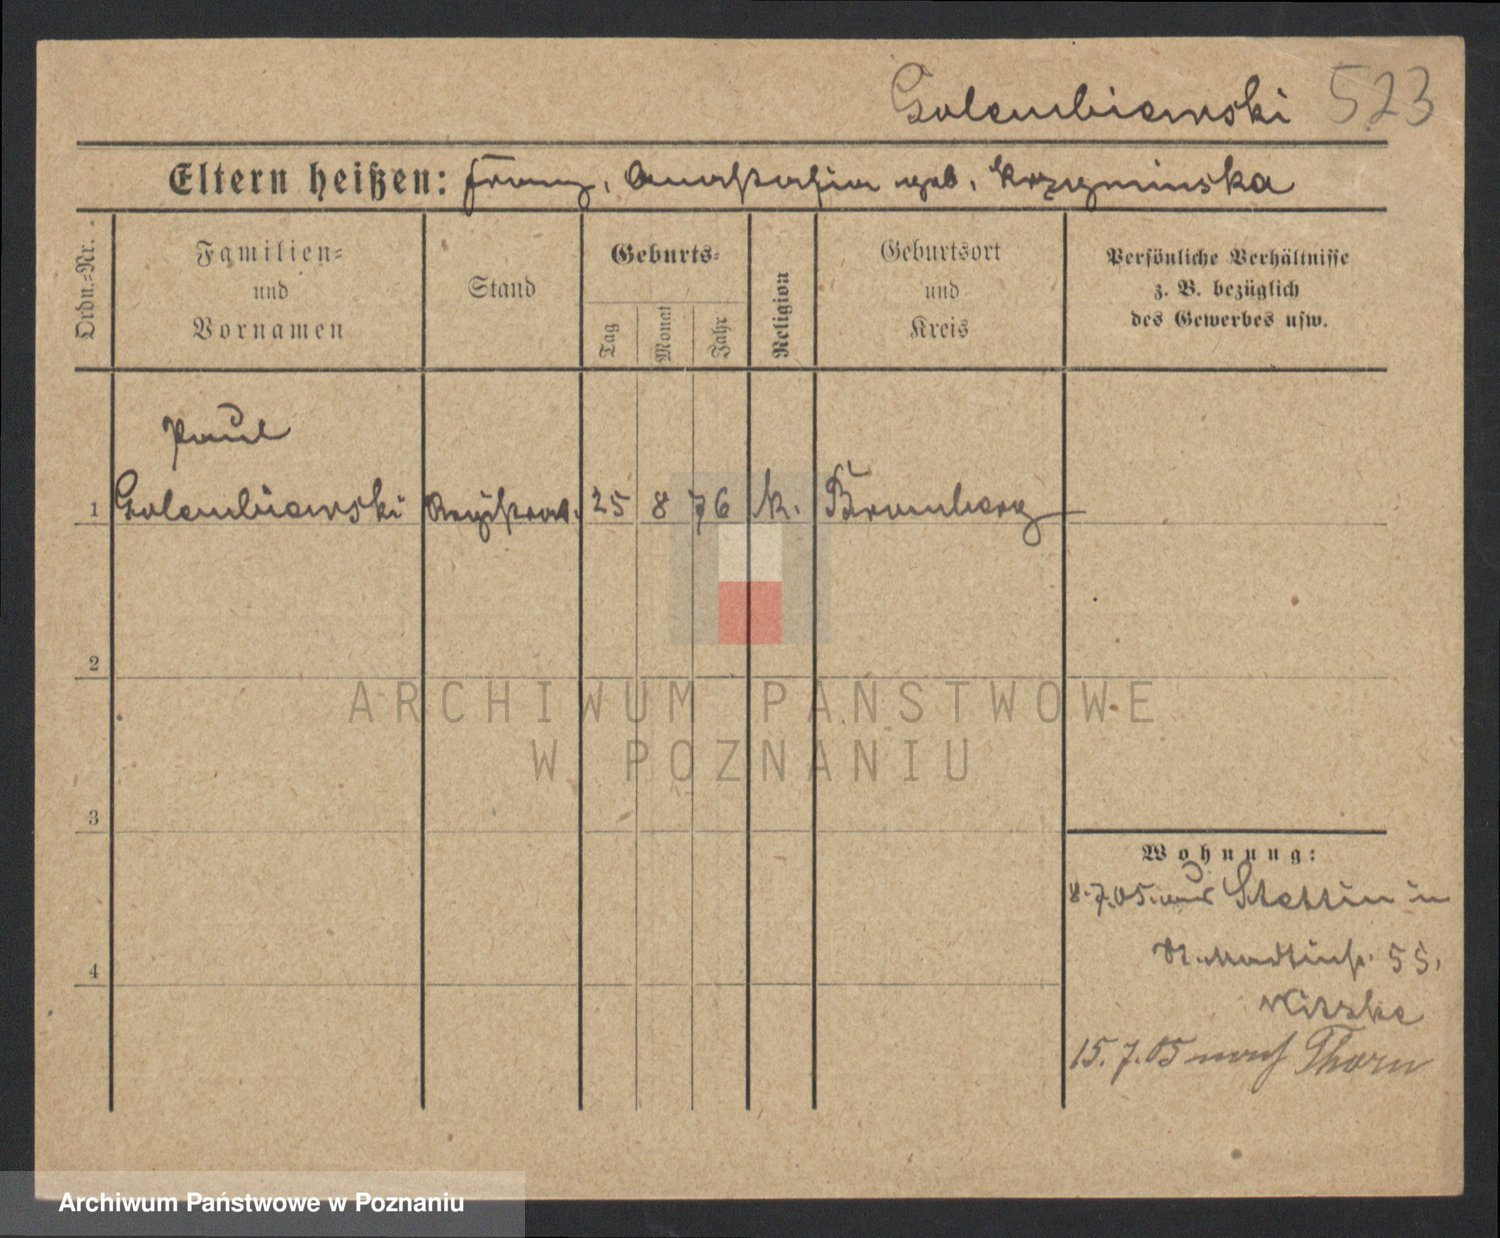 Golembiewski 523
Eltern heißen: Franz, Anastasia geb. Krzyminska
Ordn.-Nr.
Familien-
und
Vornamen
Stand
Geburts-
Tag
Monat
Jahr
Religion
Geburtsort
und
Kreis
Persönliche Verhältnisse
z. B. bezüglich
des Gewerbes usw.
Paul
1 Golembiewski Registrat. 25 8 76 k. Bromberg
2
ARCHIWUM PAŃSTWOWE
W POZNANIU
3
Wohnung:
8.7.05. aus Stettin in
55.
4
Nitzke
15.7.05 nach Thorn
Archiwum Państwowe w Poznaniu